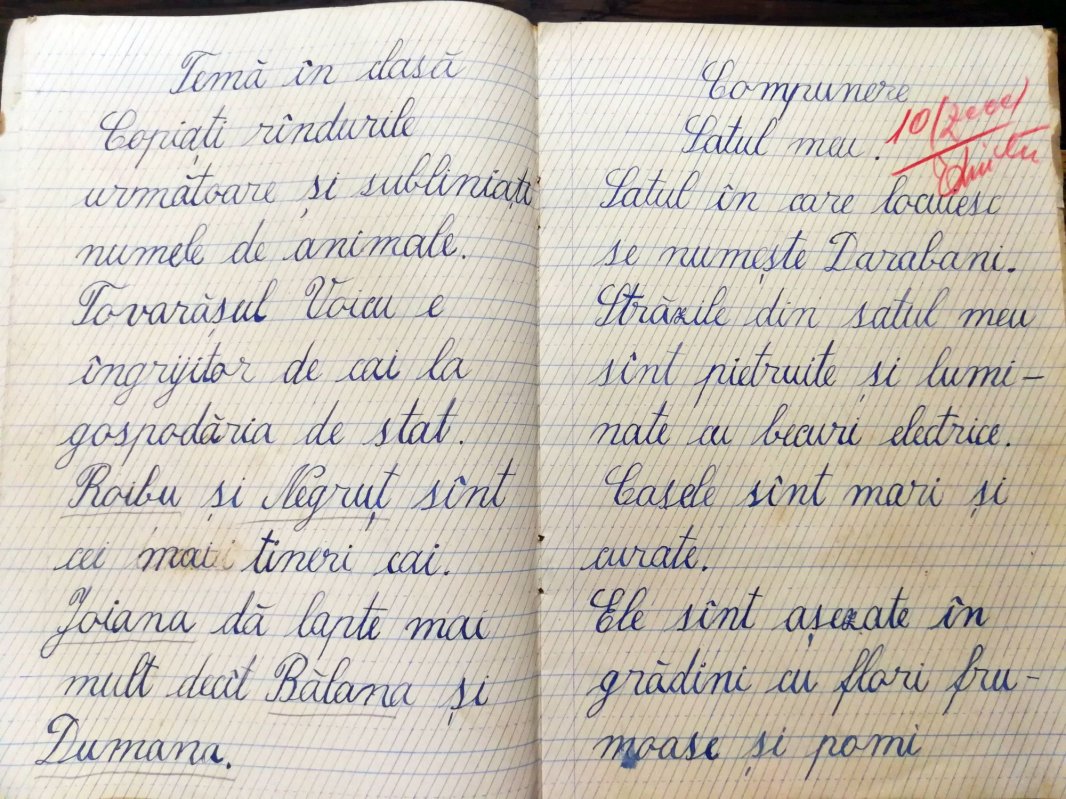 Temă în clasă
Copiați rîndurile
următoare și subliniați
numele de animale.
Tovarășul Voicu e
îngrijitor de cai la
gospodăria de stat.
Roibu și Negruț sînt
cei mai tineri cai.
Joiana dă lapte mai
mult decît Bălana și
Dumana.
Compunere
Satul meu.
10 (zece)
Satul în care locuiesc
se numește Darabani.
Străzile din satul meu
sînt pietruite și lumi-
nate cu becuri electrice.
Casele sînt mari și
curate.
Ele sînt așezate în
grădini cu flori fru-
moase și pomi